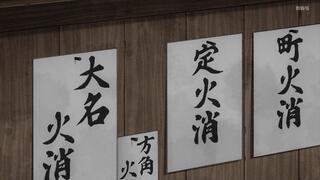 町火消
定火消
方角火
大名火消